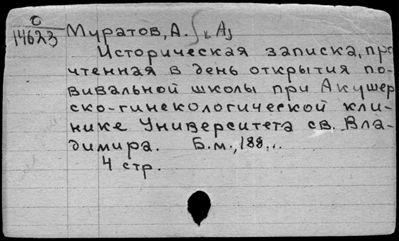 0
14623 Муратов, А. А.
Историческая записка, про
чтенная в день открытия по-
вивальной школы при Акушер
ско-гинекологической кли-
нике Университета св. Вла-
димира. Б.м., 188...
4 стр.